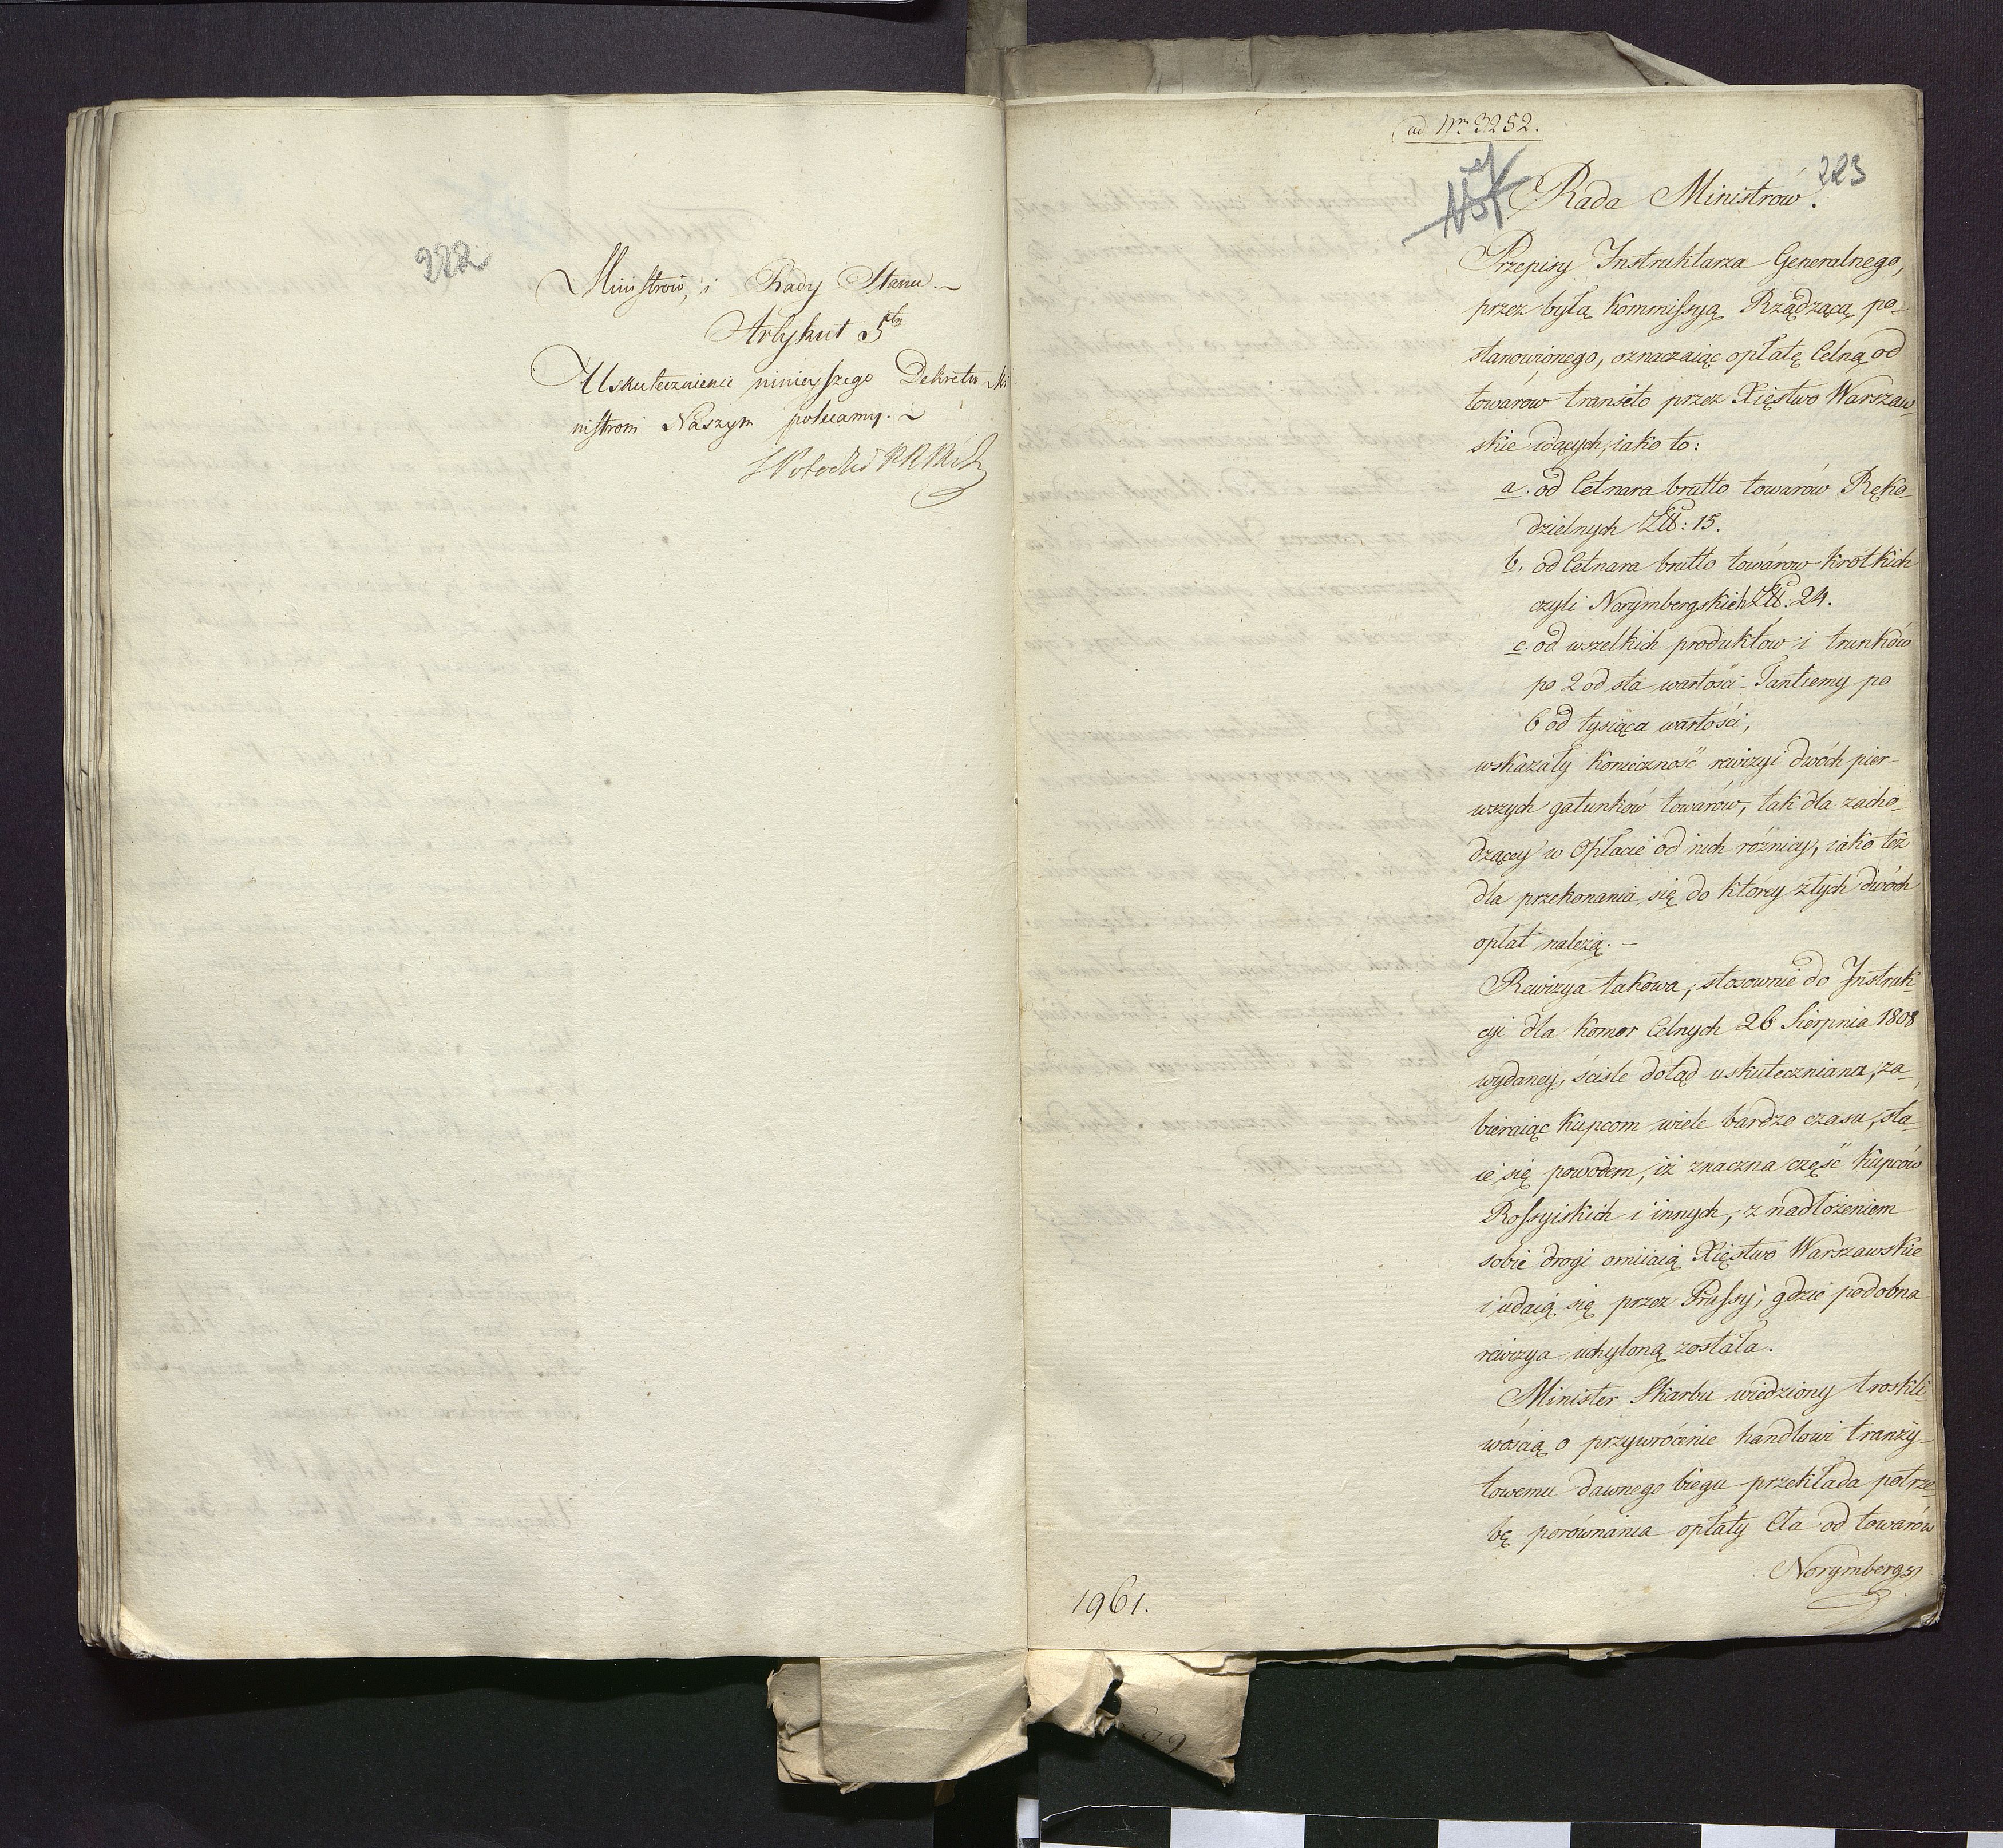 222
Ministrów, i Rady Stanu.~
Artykuł 5ty
Uskutecznienie ninieyszego Dekretu Mi
nistrom Naszym polecamy.~
ad Nrm 3252.
223
Rada Ministrów.
Przepisy Instruktarza Generalnego,
przez byłą Kommissyą Rządzącą po-
stanowionego, oznaczaiąc opłatę Celną od
towarów transito przez Xięstwo Warszaw
skie idących, iako to:
a. od Cetnara brutto towarów Ręko-
dzielnych Złł: 15.
b. od Cetnara brutto towárow krotkich
czyli Norymbergskich Złł: 24.
c. od wszelkich produktow i trunków
po 2 od sta wartości - Tantiemy po
6 od tysiąca wartości,
wskazały konieczność rewizyi dwóch pier-
wszych gatunków towarów, tak dla zacho-
dzącey w Opłacie od nich różnicy, iako też
dla przekonania się do którey z tych dwóch
opłat należą. -
Rewizya takowa, stosownie do Instruk-
cyi dla Komor Celnych 26 Sierpnia 1808
wydaney, ściśle dotąd uskuteczniana, za-
bieraiąc Kupcom wiele bardzo czasu, sta-
ie się powodem, iż znaczna część Kupców
Rossyiskich i innych, z nadłożeniem
sobie drogi omiiaią Xięstwo Warszawskie
i udaią się przez Prussy, gdzie podobna
rewizya uchyloną została.
Minister Skarbu wiedziony troskli-
wością o przywrócenie handlowi tranzy-
towemu dawnego biegu przekłada potrze-
bę porównania opłaty Cła od towarów
Norymbergs
1961.